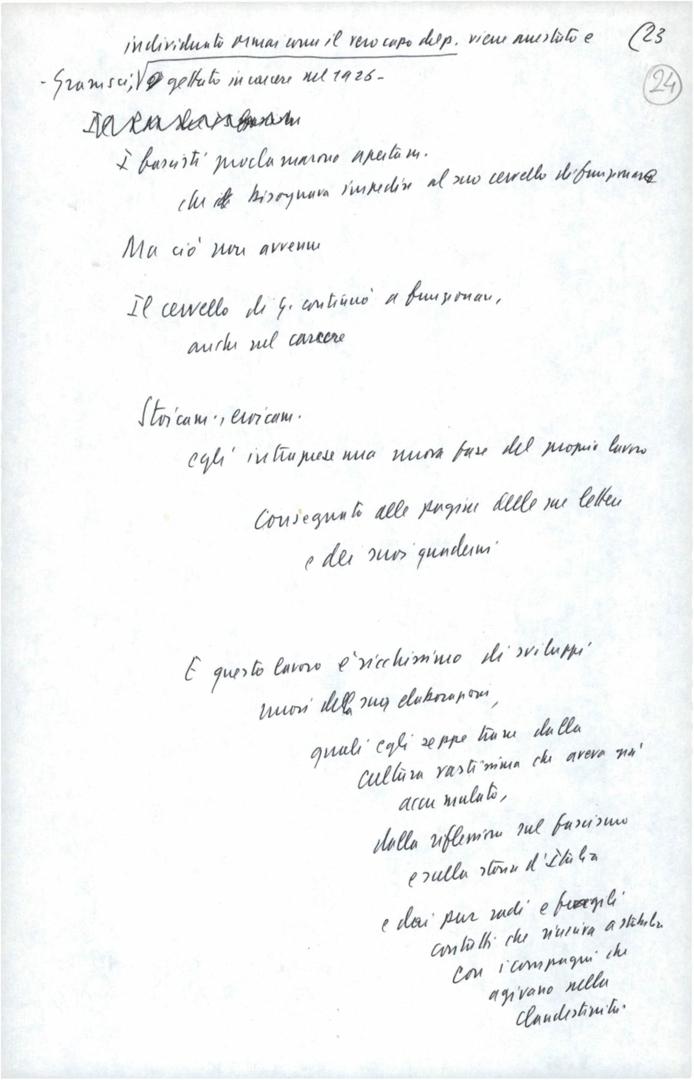 individuato ormai come il vero capo del p. viene arrestato e (23
- Gramsci, gettato in carcere nel 1926 -
24
I fascisti proclamarono apertam.
che bisognava impedire al suo cervello di funzionare
Ma ciò non avvenne
Il cervello di G. continuò a funzionare,
anche nel carcere
Stoicam., eroicam.
egli intraprese una nuova fase del proprio lavoro
consegnato alle pagine delle sue lettere
e dei suoi quaderni
E questo lavoro è ricchissimo di sviluppi
nuovi della sua elaborazione,
quali egli seppe trarre dalla
cultura vastissima che aveva già
accumulato,
dalla riflessione sul fascismo
e sulla storia d'Italia
e dai pur radi e fragili
contatti che riusciva a stabilire
con i compagni che
agivano nella
clandestinità.